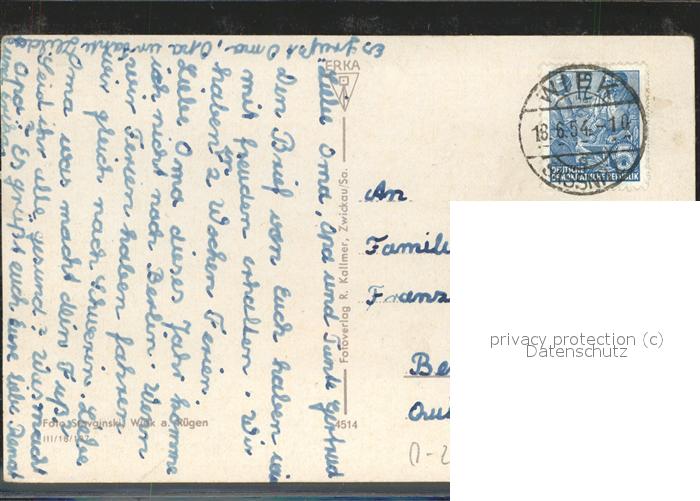 Liebe Oma, Opa und Tante Gertrud
Den Brief von Euch haben wir
mit freuden erhalten. Wir
haben 2 Wochen Ferien.
Liebe Oma dieses Jahr komme
ich nicht nach Berlin. Wenn
wir Ferien haben fahren
wir gleich nach Schwerin. Liebe
Oma was macht dein Fuß.
Seid ihr alle gesund? Was macht
Opa? Es grüßt euch eure liebe
Es grüßt Oma, Opa und Tante
ERKA
Fotoverlag R. Kallmer, Zwickau/Sa.
4514
Foto Stavginski, Wiek a. Rügen
III/18/197
WIEK
18.6.54.-10
DEUTSCHE
DEMOKRATISCHE REPUBLIK
An
Famili
Franz
Be
privacy protection (c)
Datenschutz